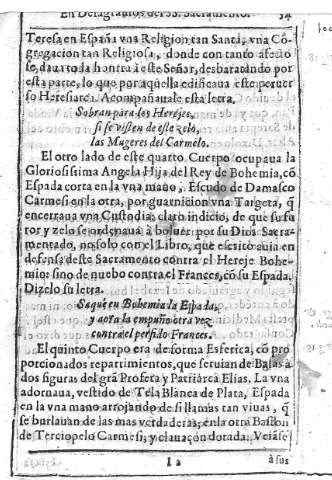 En Desagrauios del SS. Sacramento. 34
Teresa en España vna Religion tan Santa, vna Cō-
gregacion tan Religiosa, donde con tanto afecto
se, dau to la honrra à este Señor, desbaratando por
esta parte, lo que por aquella edificaua este peruer
so Heresiarca. Acompañauale esta letra.
Sobran para los Herejes,
si se visten de este zelo,
las Mugeres del Carmelo.
El otro lado de este quarto Cuerpo ocupaua la
Gloriosissima Angela Hija del Rey de Bohemia, cō
Espada corta en la vna mano, Escudo de Damasco
Carmesi en la otra, por guarnicion vna Targeta, q̄
encerraua vna Custodia: claro indicio, de que su fu
ror y zelo se ordenaua à boluer por su Dios Sacra-
mentado, no solo con el Libro, que escrito auia en
defensa deste Sacramento contra el Hereje Bohe-
mio: sino de nuebo contra el Frances, cō su Espada.
Dizelo su letra.
Saquè en Bohemia la Espada,
y aora la empuño otra vez
contra el perfido Frances.
El quinto Cuerpo era de forma Esferica, cō pro
porcionados repartimientos, que seruian de Basas à
dos figuras del grā Profeta y Patriarca Elias. La vna
adornaua, vestido de Tela Blanca de Plata, Espada
en la vna mano arrojando de si llamas tan viuas, q̄
se burlauan de las mas verdaderas; en la otra Baston
de Terciopelo Carmesi, y clauaçon dorada. Veiase
I 2 à sus